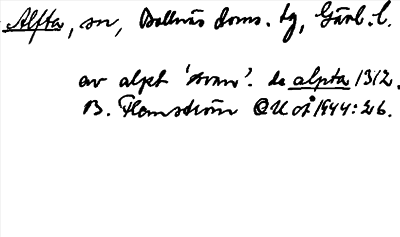 Alfta, sn, Bollnäs doms. tg, Gävl. l.
av alpt 'svan'. de alpta 1312.
B. Flemström OUoÅ 1944: 26.